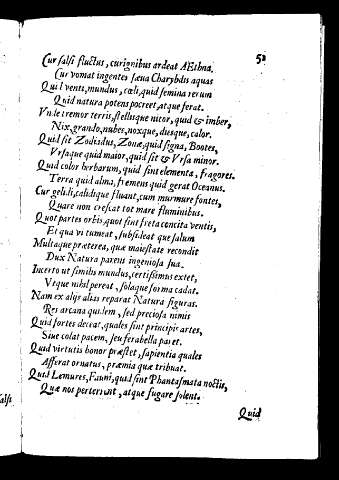 52
Cur salsi fluctus, cur ignibus ardeat AEthna.
Cur vomat ingentes sæua Charybdis aquas
Quil venti, mundus, cœli, quid semina rerum
Quid natura potens pocreet, atque ferat.
Vnde tremor terris, stellisque nitor, quid & imber,
Nix, grando, nubes, noxque, diesque, calor.
Quid sit Zodiacus, Zonæ, quid signa, Bootes,
Vrsaque quid maior, quid sit & Vrsa minor.
Quid color herbarum, quid sint elementa, fragores.
Terra quid alma, fremens quid gerat Oceanus.
Cur gelidi, calidique fluant, cum murmure fontes,
Quare non crescat tot mare fluminibus.
Quot partes orbis, quot sint freta concita ventis,
Et qua vi tumeat, subsideat que salum
Multaque præterea, quæ maiestate recondit
Dux Natura parens ingeniosa sua.
Incerto ut similis mundus, certissimus extet,
Vtque nihil pereat, solaque forma cadat.
Nam ex alijs alias reparat Natura figuras.
Res arcana quidem, sed preciosa nimis
Quid fortes deceat, quales sint principis artes,
Siue colat pacem, seu ferabella paret.
Quid virtutis honor præstet, sapientia quales
Afferat ornatus, præmia quæ tribuat.
Quid Lemures, Fauni, quid sint Phantasmata noctis,
Quæ nos perterreant, atque fugare solent.
Quid